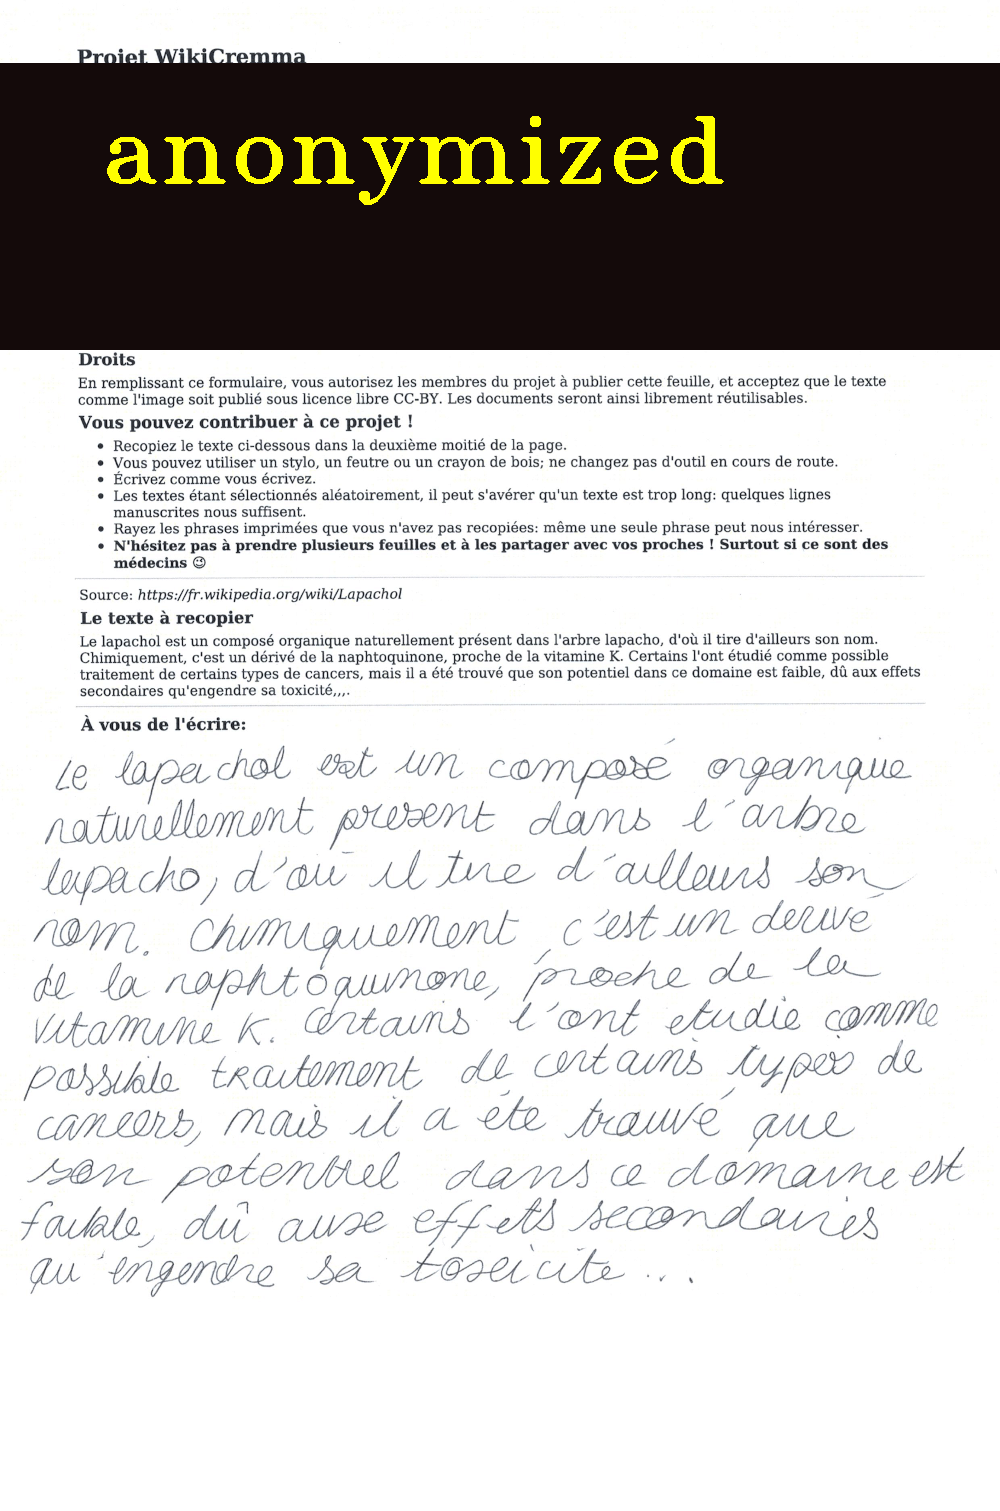 Projet WikiCremma
anonymized
Droits
En remplissant ce formulaire, vous autorisez les membres du projet à publier cette feuille, et acceptez que le texte
comme l'image soit publié sous licence libre CC-BY. Les documents seront ainsi librement réutilisables.
Vous pouvez contribuer à ce projet !
• Recopiez le texte ci-dessous dans la deuxième moitié de la page.
• Vous pouvez utiliser un stylo, un feutre ou un crayon de bois; ne changez pas d'outil en cours de route.
• Écrivez comme vous écrivez.
• Les textes étant sélectionnés aléatoirement, il peut s'avérer qu'un texte est trop long: quelques lignes
manuscrites nous suffisent.
• Rayez les phrases imprimées que vous n'avez pas recopiées: même une seule phrase peut nous intéresser.
• N'hésitez pas à prendre plusieurs feuilles et à les partager avec vos proches ! Surtout si ce sont des
médecins 😉
Source: https://fr.wikipedia.org/wiki/Lapachol
Le texte à recopier
Le lapachol est un composé organique naturellement présent dans l'arbre lapacho, d'où il tire d'ailleurs son nom.
Chimiquement, c'est un dérivé de la naphtoquinone, proche de la vitamine K. Certains l'ont étudié comme possible
traitement de certains types de cancers, mais il a été trouvé que son potentiel dans ce domaine est faible, dû aux effets
secondaires qu'engendre sa toxicité,,,.
À vous de l'écrire:
Le lapachol est un composé organique
naturellement present dans l'arbre
lapacho, d'où il tire d'ailleurs son
nom. Chimiquement, c'est un derivé
de la naphtoquinone, proche de la
vitamine K. Certains l'ont etudie comme
possible traitement de certains types de
cancers, mais il a éte trouvé que
son potentiel dans ce domaine est
faible, dû aux effets secondaires
qu'engendre sa toxicite...